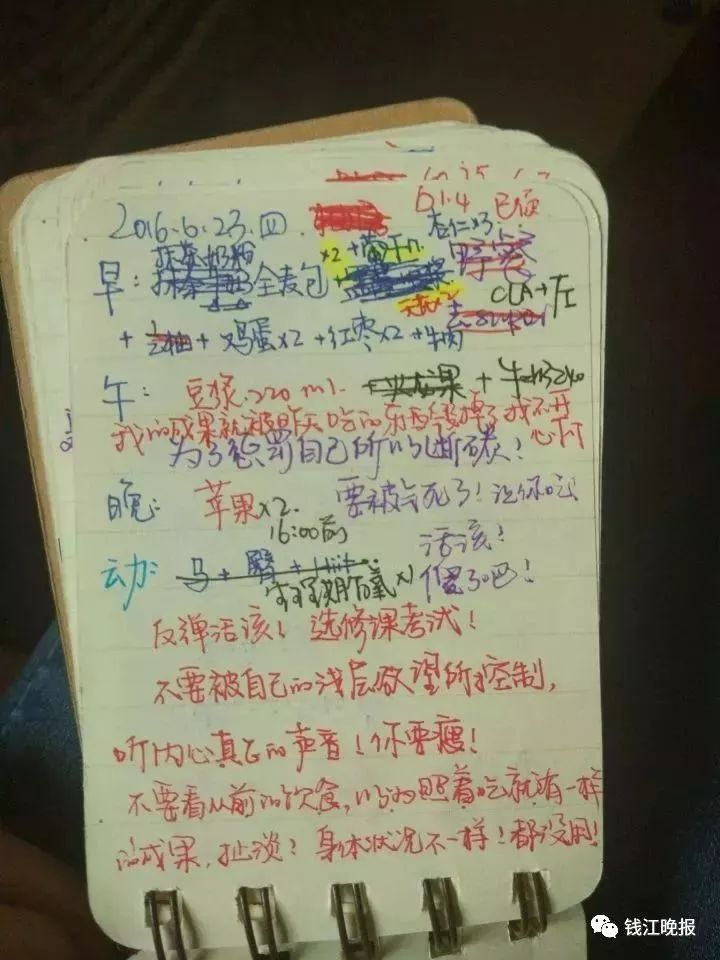 61.4 已便
2016.6.23.四
杏仁x3
抹茶奶粉 x2+葡干n.
早: 全麦包
CLA+左
+ 鸡蛋x2 +红枣x2 +牛肉
午: 豆浆.220 ml. +火龙果 + 牛奶240
我的成果就被昨天吃的东西毁掉了我不开心
为了惩罚自己所以断碳!
晚: 苹果x2. 要被气死了!让你吃
16:00前 活该!
运动: 马 + 臀 + Hiit 傻了吧!
生理期有氧x1
反弹活该! 选修课考试!
不要被自己的浅层欲望所控制,
听内心真正的声音!你要瘦!
不要看从前的饮食,以为照着吃就有一样
的成果,扯淡!身体状况不一样!都没用!
钱江晚报